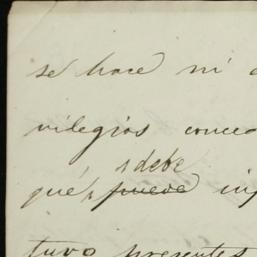 se hace ni
vilegios conce
debe
qué, puede inf
tuvo presentes